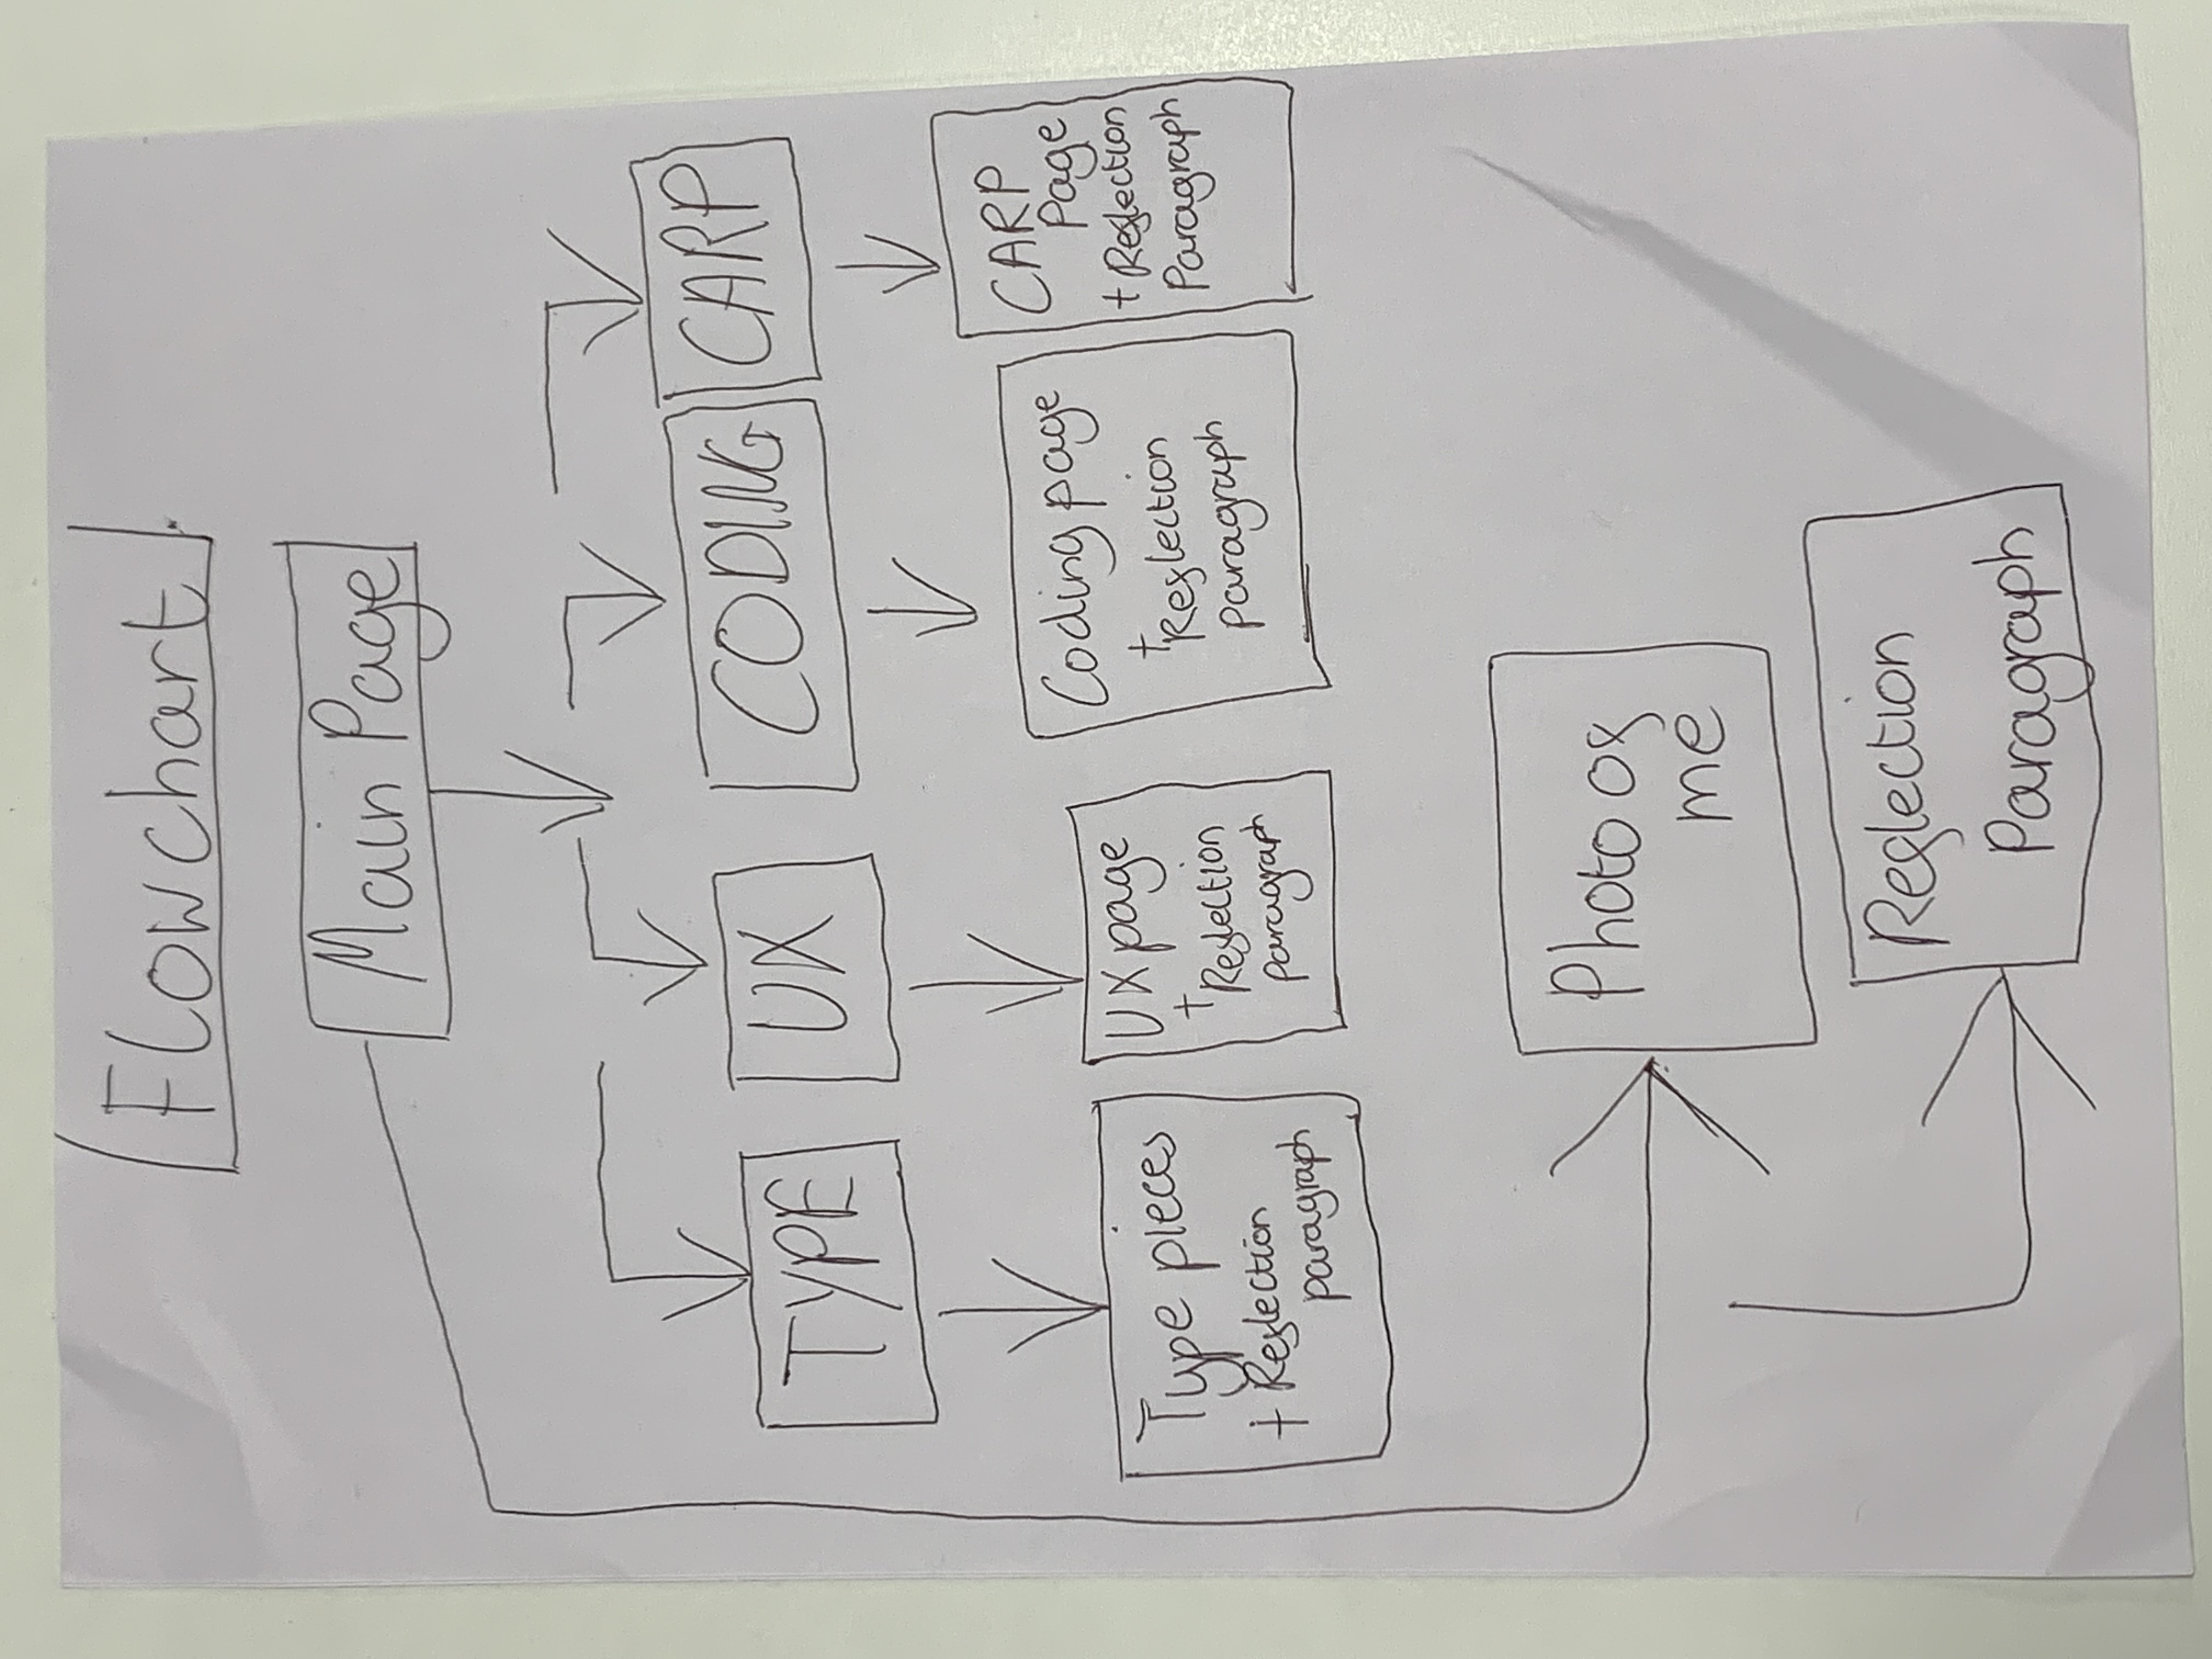 Flowchart
Main Page
TYPE
UX
CODING
CARP
Type pieces
+ Reflection
paragraph
UX page
+
Reflection
paragraph
Coding page
+
Reflection
paragraph
CARP
Page
+ Reflection
Paragraph
Photo of
me
Reflection
Paragraph